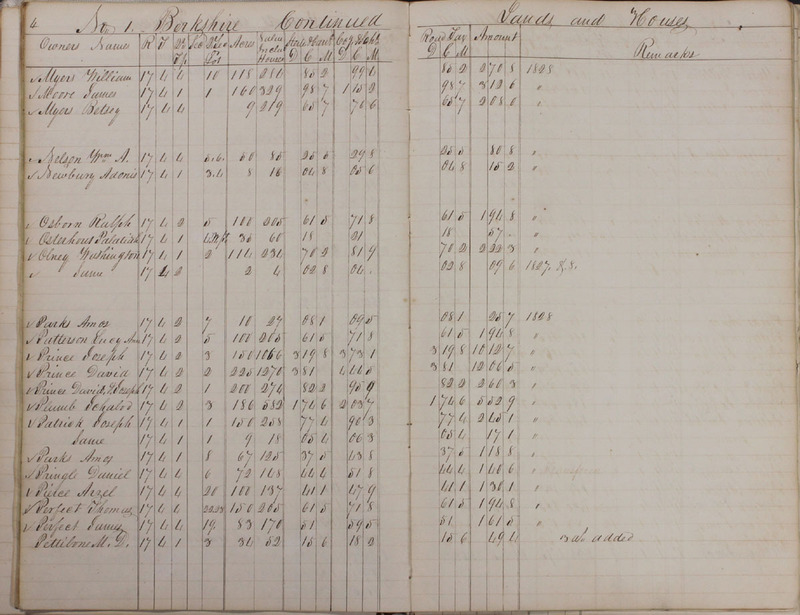 4 No 1. Berkshire Continued Lands and Houses
Owners Names R T Acres Value Houses D C M D C M Road Tax D C M Amount Remarks
Myers William 17 4 4 10 118 284 85 2 99 4 85 2 2 70 8 1828
Moore James 17 4 1 1 160 329 98 7 1 15 2 98 7 3 12 6 "
Myers Betsey 17 4 4 9 219 65 7 76 6 65 7 2 08 0 "
Nelson Wm A. 17 4 4 5.6. 50 85 25 5 29 8 25 5 80 8 "
Newbury Adonis 17 4 1 3.4 8 16 04 8 05 6 04 8 15 2 "
Osborn Ralph 17 4 2 5 100 205 61 5 71 8 61 5 1 94 8 "
Osterhout Palatiah 17 4 1 36 60 18 21 18 57 "
Olney Washington 17 4 1 2 114 234 70 2 81 9 70 2 2 22 3 "
Same 17 4 2 2 4 02 8 04 02 8 09 6 1827. & 8.
Parks Amos 17 4 2 7 10 27 08 1 09 5 08 1 25 7 1828
Patterson Lucy Ann 17 4 2 5 100 205 61 5 71 8 61 5 1 94 8 "
Prince Joseph 17 4 2 3 150 1066 3 19 8 3 73 1 3 19 8 10 12 7 "
Prince David 17 4 2 2 225 1270 3 81 4 44 5 3 81 12 06 5 "
Prince David, & Joseph 17 4 2 1 200 274 82 2 95 9 82 2 2 60 3 "
Plumb Ichabod 17 4 2 3 186 582 1 74 6 2 03 7 1 74 6 5 52 9 "
Patrick Joseph 17 4 1 1 150 258 77 4 90 3 77 4 2 45 1 "
Same 17 4 1 1 9 18 05 4 06 3 05 4 17 1 "
Parks Amos 17 4 1 8 67 125 37 5 43 8 37 5 1 18 8 "
Pringle Daniel 17 4 4 6 72 148 44 4 51 8 44 4 1 40 6 "
Pierce Azel 17 4 4 20 100 137 41 1 47 9 41 1 1 30 1 "
Perfect Thomas 17 4 4 150 205 61 5 71 8 61 5 1 94 8 "
Perfect James 17 4 4 19 83 170 51 59 5 51 1 61 5 "
Pettibone M. D. 17 4 1 3 34 52 15 6 18 2 15 6 49 4 added